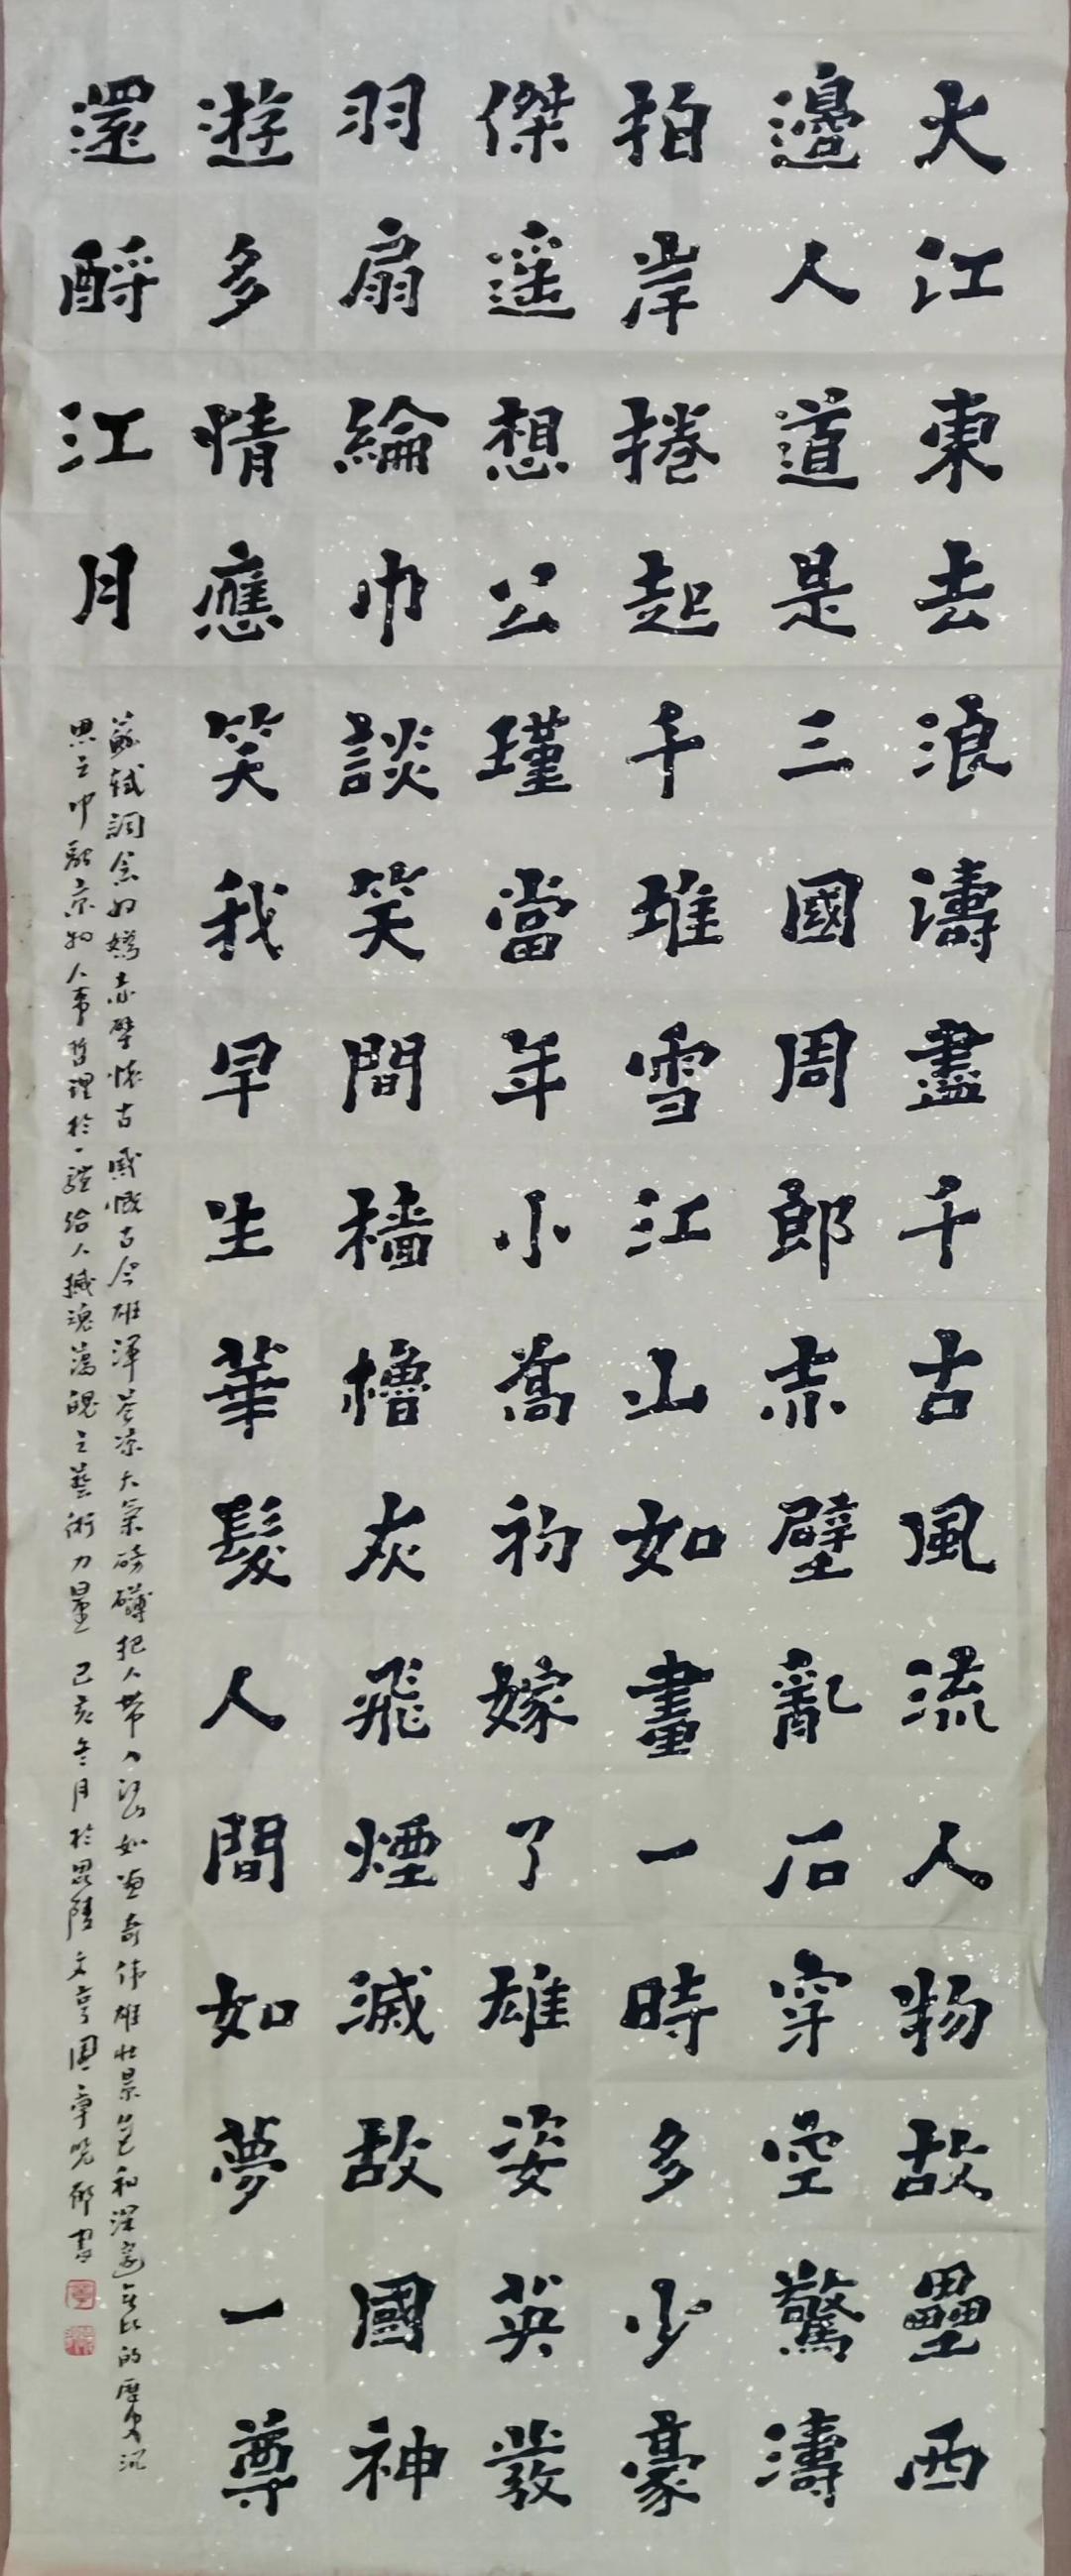 大江東去浪濤盡千古風流人物故壘西
邊人道是三國周郎赤壁亂石穿空驚濤
拍岸捲起千堆雪江山如畫一時多少豪
傑遥想公瑾當年小喬初嫁了雄姿英發
羽扇綸巾談笑間檣櫓灰飛煙滅故國神
遊多情應笑我早生華髮人間如夢一尊
還酹江月
蘇軾詞念奴嬌赤壁懷古感慨古今雄渾蒼涼大氣磅礴把人帶入江山如畫奇偉雄壯景色和深邃無比的歷史沉
思之中融景物人事哲理於一體給人撼魂蕩魄之藝術力量 己亥冬月於毘陵文亨園章曉書